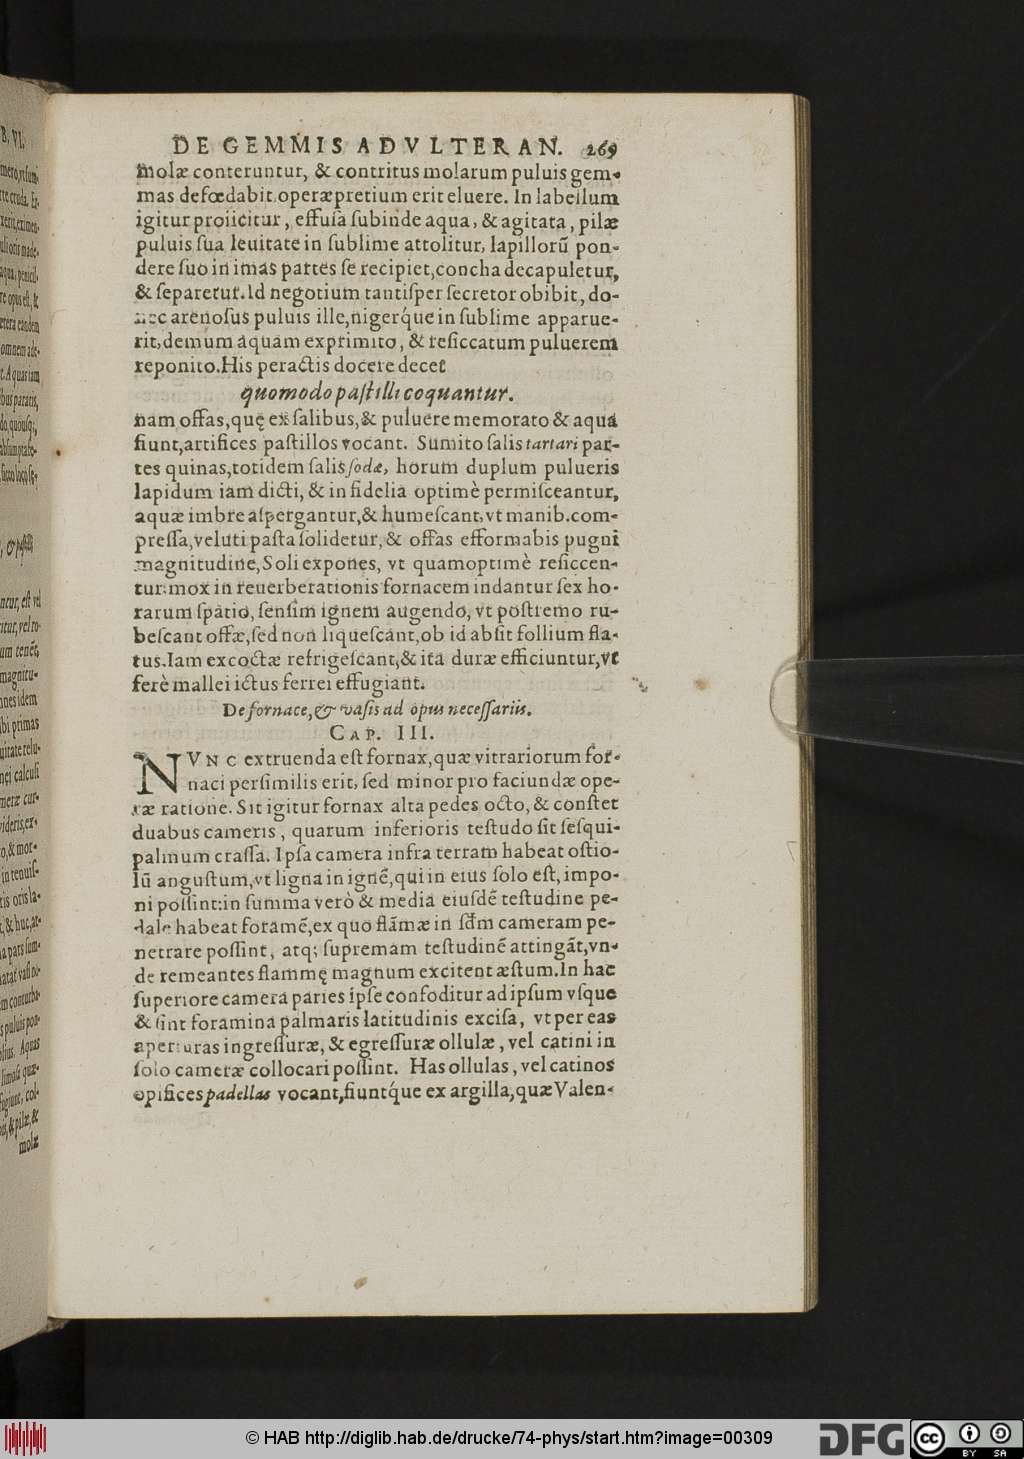 DE GEMMIS ADVLTERAN. 269
molæ conteruntur, & contritus molarum puluis gem-
mas defœdabit, operæpretium erit eluere. In labellum
igitur proiicitur, effuſa ſubinde aqua, & agitata, pilæ
puluis ſua leuitate in ſublime attolitur, lapillorũ pon-
dere ſuo in imas partes ſe recipiet, concha decapuletur,
& ſeparetur. Id negotium tantiſper ſecretor obibit, do-
nec arenoſus puluis ille, nigerq́ue in ſublime apparue-
rit, demum aquam exprimito, & reſiccatum puluerem
reponito. His peractis docere decet
quomodo paſtilli coquantur.
nam offas, quę ex ſalibus, & puluere memorato & aqua
fiunt, artifices paſtillos vocant. Sumito ſalis tartari par-
tes quinas, totidem ſalis ſodæ, horum duplum pulueris
lapidum iam dicti, & in fidelia optimè permiſceantur,
aquæ imbre aſpergantur, & humeſcant, vt manib. com-
preſſa, veluti paſta ſolidetur, & offas efformabis pugni
magnitudine, Soli expones, vt quamoptimè reſiccen-
tur: mox in reuerberationis fornacem indantur ſex ho-
rarum ſpatio, ſenſim ignem augendo, vt poſtremo ru-
beſcant offæ, ſed non liqueſcant, ob id abſit follium fla-
tus. Iam excoctæ refrigeſcant, & ita duræ efficiuntur, vt
ferè mallei ictus ferrei effugiant.
De fornace, & vaſis ad opus neceſſariis.
CAP. III.
NVNC extruenda eſt fornax, quæ vitrariorum for-
naci perſimilis erit, ſed minor pro faciundæ ope-
ræ ratione. Sit igitur fornax alta pedes octo, & conſtet
duabus cameris, quarum inferioris teſtudo ſit ſeſqui-
palmum craſſa. Ipſa camera infra terram habeat oſtio-
lũ anguſtum, vt ligna in ignẽ, qui in eius ſolo eſt, impo-
ni poſſint: in ſumma verò & media eiuſdẽ teſtudine pe-
dale habeat foramẽ, ex quo flãmæ in ſcđm cameram pe-
netrare poſſint, atq; ſupremam teſtudinẽ attingãt, vn-
de remeantes flammę magnum excitent æſtum. In hac
ſuperiore camera paries ipſe confoditur ad ipſum vſque
& ſint foramina palmaris latitudinis exciſa, vt per eas
aperturas ingreſſuræ, & egreſſuræ ollulæ, vel catini in
ſolo cameræ collocari poſſint. Has ollulas, vel catinos
opifices padellas vocant, fiuntq́ue ex argilla, quæ Valen-
© HAB http://diglib.hab.de/drucke/74-phys/start.htm?image=00309
DFG
cc BY SA